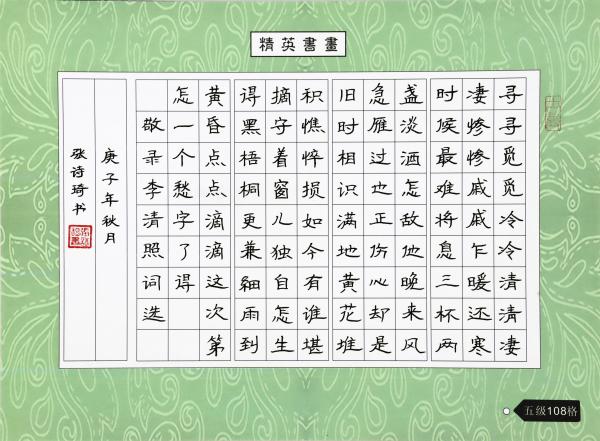 精英書畫
寻寻觅觅冷冷清清凄
凄惨惨戚戚乍暖还寒
时候最难将息三杯两
盏淡酒怎敌他晚来风
急雁过也正伤心却是
旧时相识满地黄花堆
积憔悴损如今有谁堪
摘守着窗儿独自怎生
得黑梧桐更兼細雨到
黄昏点点滴滴这次第
怎一个愁字了得
敬录李清照词选
庚子年秋月
张诗琦书
五级108格